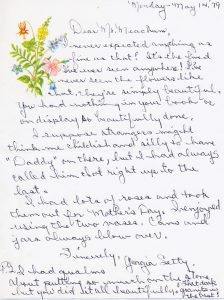 Monday - May 14, '79
Dear Mr. Meacham,
I never expected anything as
fine as that! It's the finest
I've ever seen anywhere! I've
never seen the flowers like
that. They're simply beautiful.
You had nothing in your book or
on display so beautifully done.
I suppose strangers might
think me childish and silly to have
"Daddy" on there, but I had always
called him that right up to the
last.
I had lots of roses and took
them out for Mother's Day. I enjoyed
using the two vases. Cans and
jars always blow over.
Sincerely, Georgia Getty
P.S. I had qualms
about putting so much on the stone,
but you did it all beautifully.